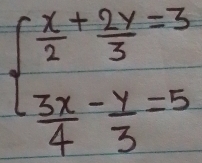 x/2 + 2y/3 = 3
3x/4 - y/3 = 5